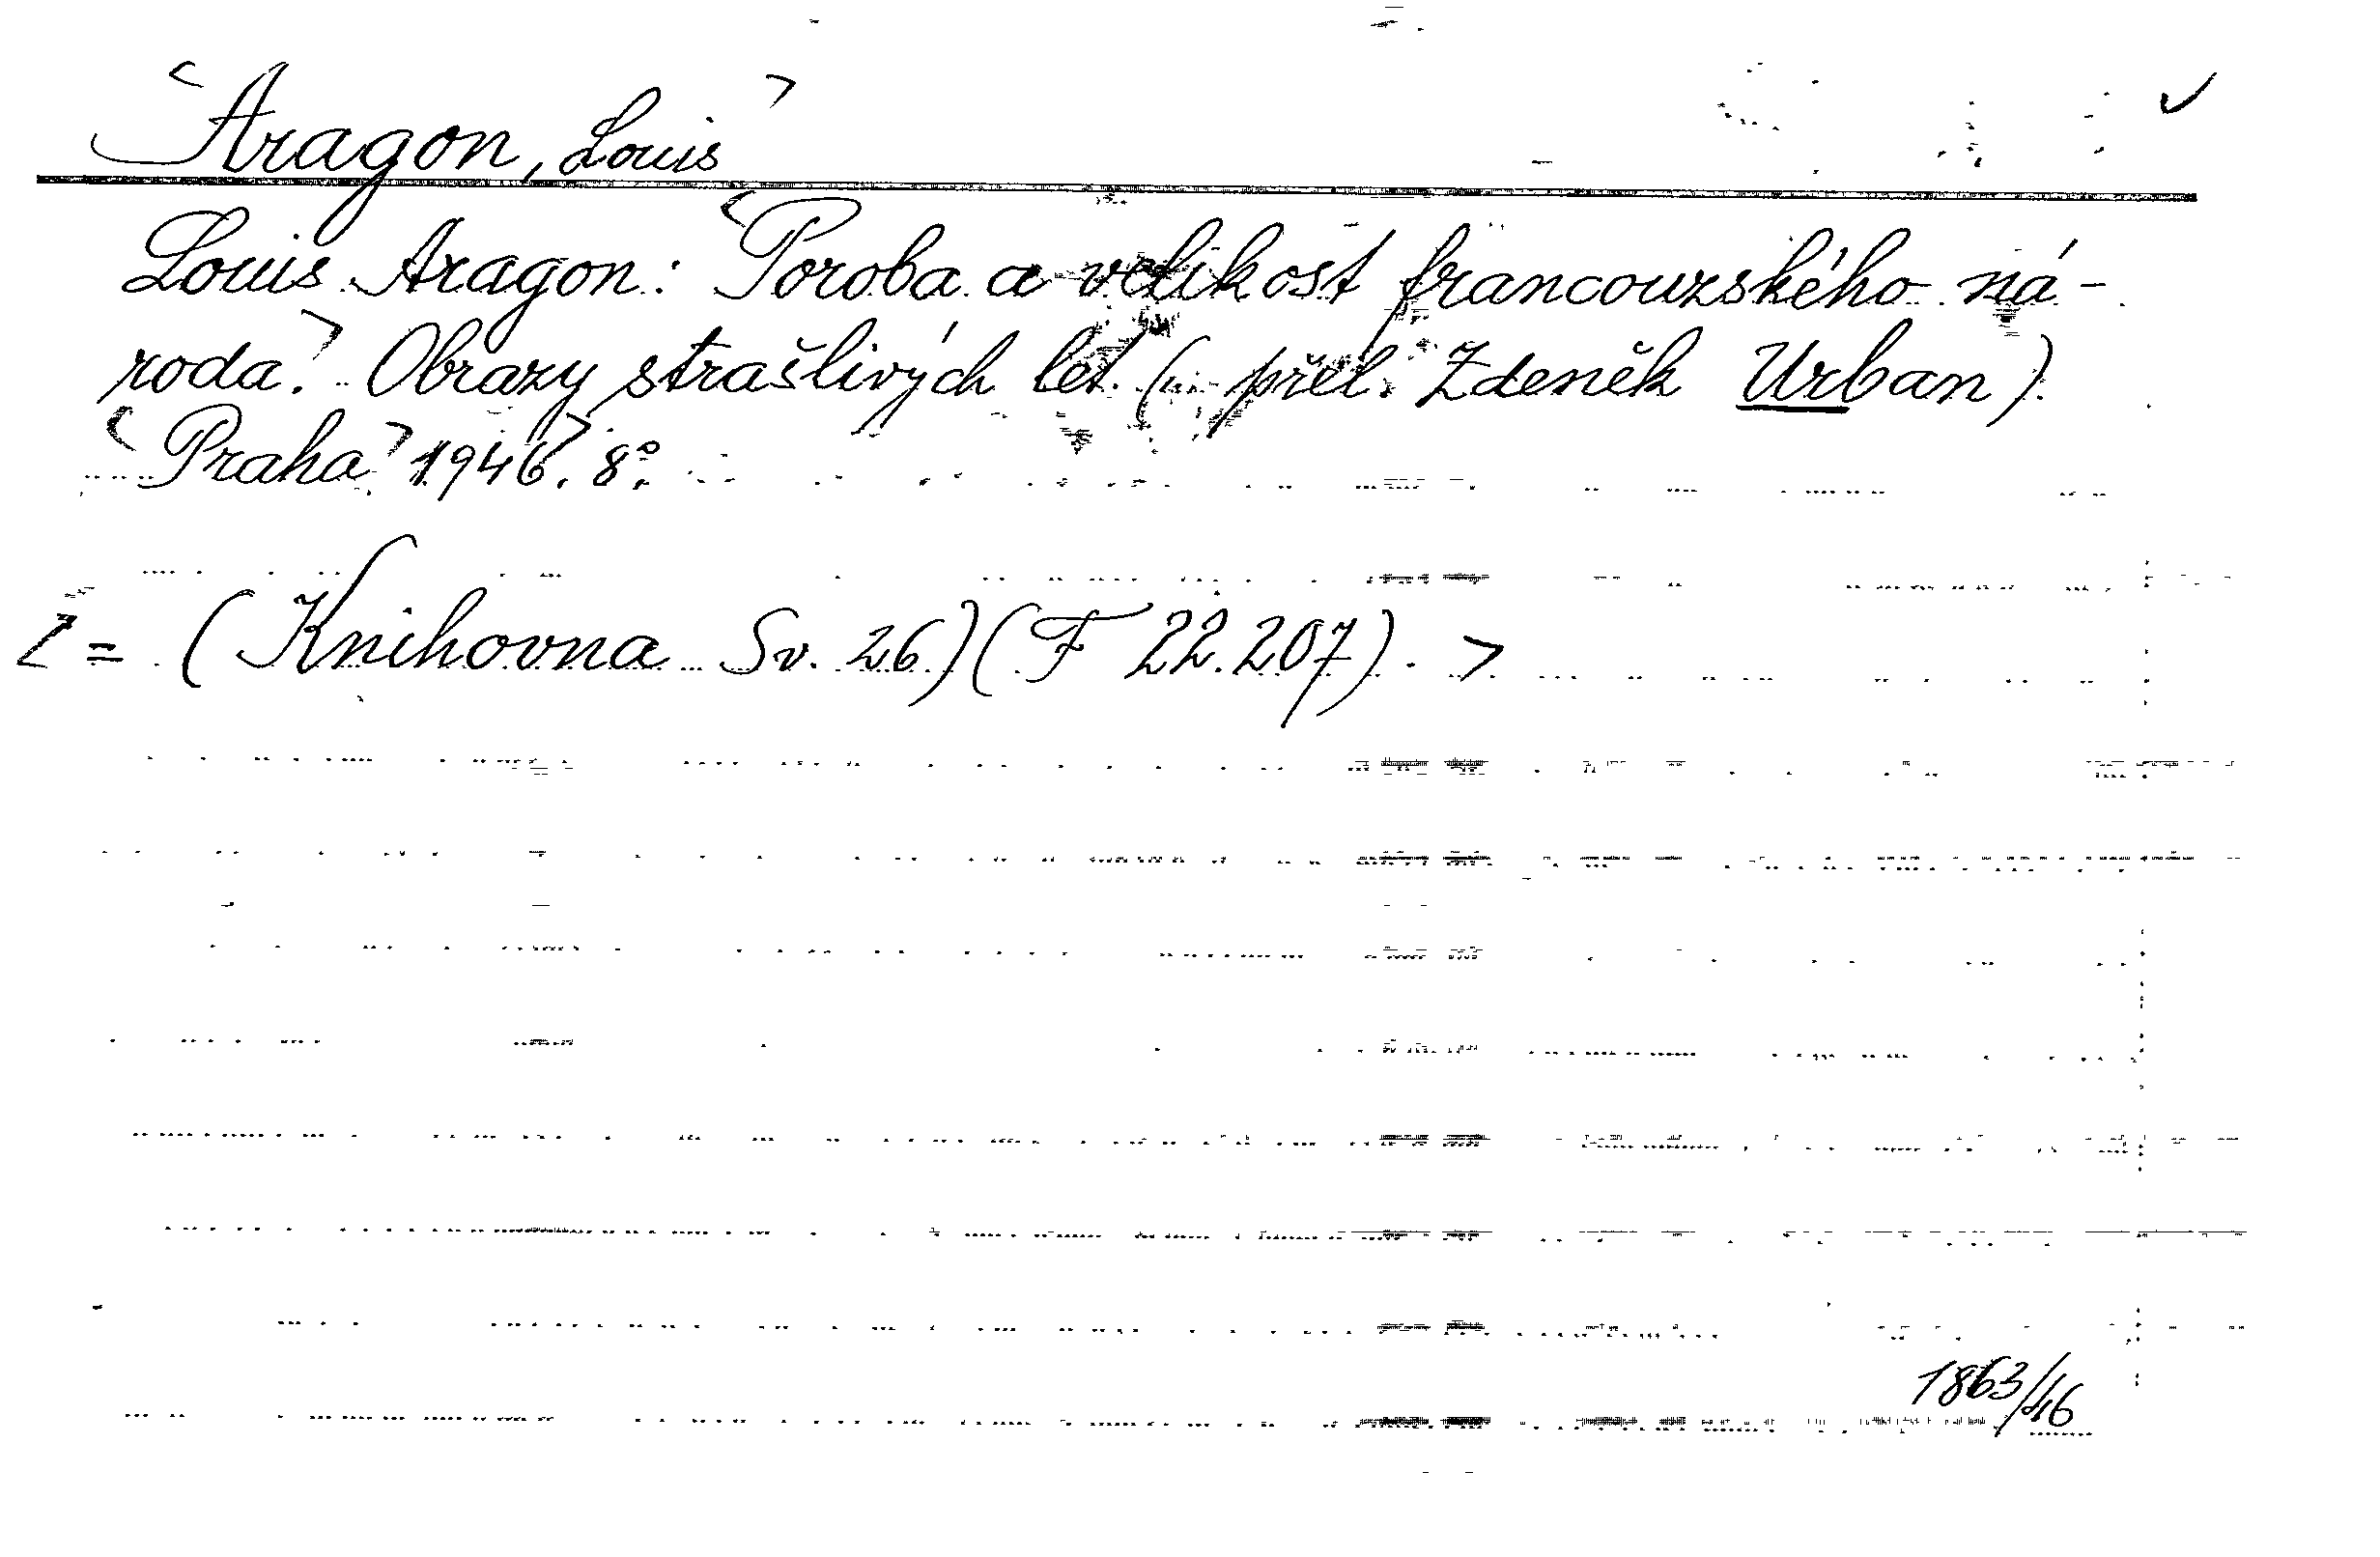 <Aragon, Louis> ✓
Louis Aragon: <Poroba a velikost francouzského ná-
roda.> Obrazy strašlivých let. ( přel. Zdeněk Urban).
<Praha> 1946>. 8°.
= (Knihovna Sv. 26) (F 22.207). >
1863/46